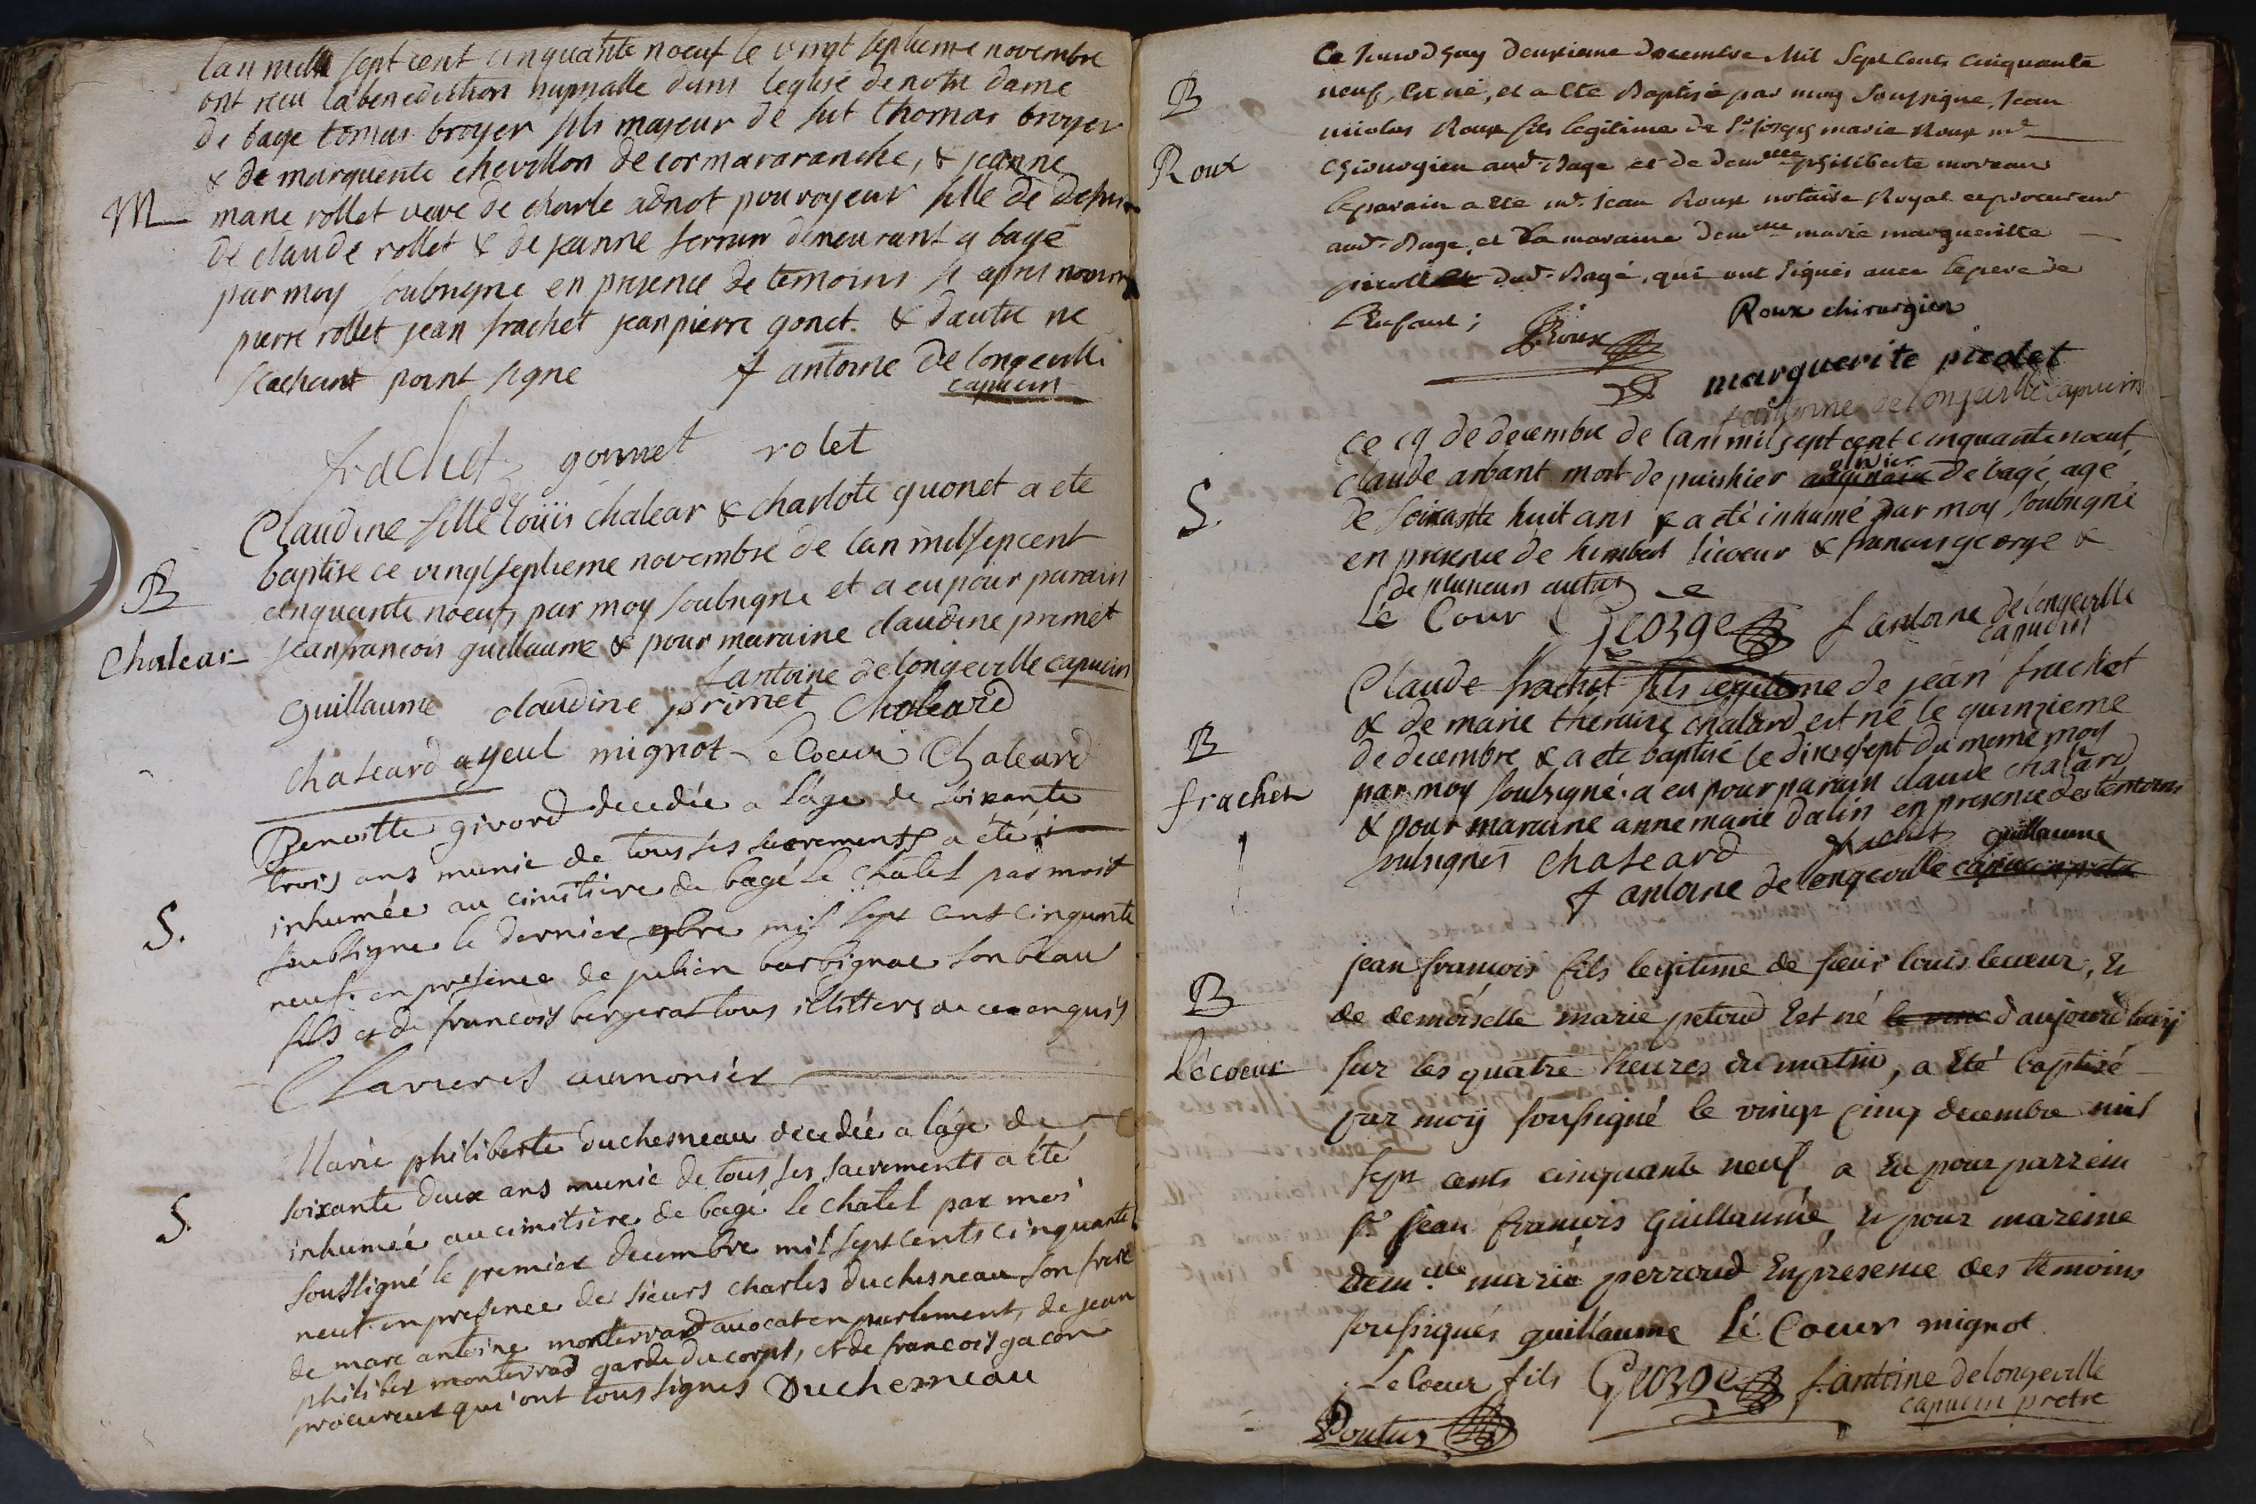 lan mille sept cent cinquante noeuf le vingt septieme novembre
ont receu la benediction nupsialle dans leglise de notre dame
de bage tomas broyer fils majeur de fut thomas broyer
& de marguerite chevillon de cormararanche, & jeanne
M
marie rollet veve de charle adnot pourvoyeur fille de
de claude rollet & de jeanne demeurant a bagé
par moy soubsigne en presence de temoins si apres
pierre rollet jean frachet jean pierre gonet. & dautre ne
scachant point signe f antoine de longeville
capucin
frachet gonnet rolet
Claudine fille de loüis chalear & charlote quonet a ete
baptise ce vingt septieme novembre de lan mil sepcent
B
cinquante noeuf, par moy soubsigne et a eu pour parain
Chalear
jean francois guillaume & pour maraine claudine primet
f antoine de longeville capucin
Guillaume claudine primet Chaleard
chaleard ayeul mignot Le Coeur Chaleard
Benoitte givord decedée a l'age de soixante
trois ans munie de tous ses sacrements a été
inhumée au cimitiere de bagé le chatel par moi
S.
soubsigne le dernier 9bre mil sept cent cinquante
neuf. en presence de julien barbignac son beau
fils et de françois bergerat tous illitters de ce enquis
aumonier
Marie philiberte Duchesneau decedée a l'age de
soixante deux ans munie de tous ses sacrements a été
S.
inhumée au cimitiere de bagé le chatel par moi
soussigné le premier decembre mil sept cents cinquante
neuf. en presence de sieurs charles duchesneau son frere
de marc antoine monterrad avocat en parlement, de jean
philiber monterrad garde du corps, et de françois gacon
procureur qui ont tous signes Duchesneau
Ce Jourdhuy deuxieme decembre Mil Sept Cents Cinquante
B
neuf, Est né, et a été Baptisé par moy Soussigne, Jean
nicolas Roux fils legitime de Sr joseph marie Roux md
Roux
Chirurgien aud. Bage et de demlle philiberte moreau
le parain a été mr. Jean Roux notaire Royal et procureur
aud. Bage, et La maraine demlle marie margueritte
dud. Bagé, qui ont signés avec le pere de
L'Enfant; Roux Roux chirurgien
marguerite picolet
f antoine de longeville capucin
ce 19 de decembre de lan mil sept cent cinquante noeuf
claude arbant mort de puis hier de bagé agé
S.
de soixante huit ans & a été inhumé par moy soubsigné
en presence de humbert licoeur & francois george &
de plusieurs autres
Le Coeur George f antoine de longeville
capucin
Claude frachet fils legitime de jean frachet
& de marie theraise chalard est né le quinzieme
B
de decembre & a ete baptisé le dixesept du meme moy
frachet
par moy soubsigné. a eu pour parain claude chalard
& pour maraine anne marie dalin en presence des temoins
subsignés Chaleard frachet guillaume
f antoine de longeville capucin pretre
jean françois fils legitime de sieur louis lecoeur, &
B
de demoiselle marie petoud Est né le d'aujourd'huy
Lécoeur
sur les quatre heures du matin, a été baptisé
par moy soussigné le vingt cinq decembre mil
sept cents cinquante neuf, a Eu pour parrein
sr jean françois Guillaume, & pour mareine
demlle marie perroud En presence des temoins
soussignés guillaume Le Coeur mignot
Le Coeur fils George f. antoine de longeville
capucin pretre